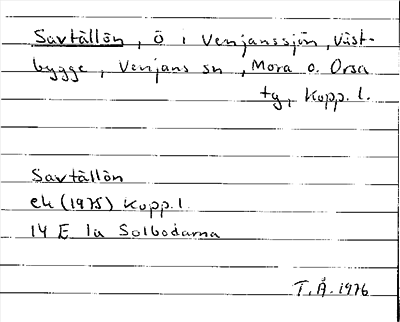 Savtällön, ö i Venjanssjön, Väst-
bygge, Venjans sn, Mora o. Orsa
tg, Kopp. l.
Savtällön
ek (1975) Kopp. l.
14 E 1a Solbodarna
T. Å. 1976